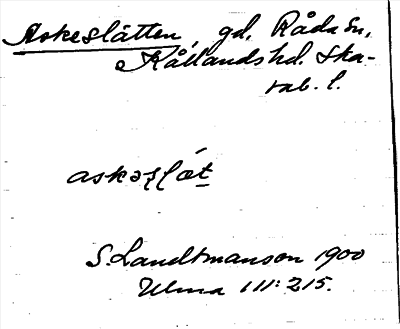 Askeslätten, gd, Råda sn,
Kållands hd. Ska-
rab. l.
askəsļǽt
S. Landtmanson 1900
Ulma 111:215.